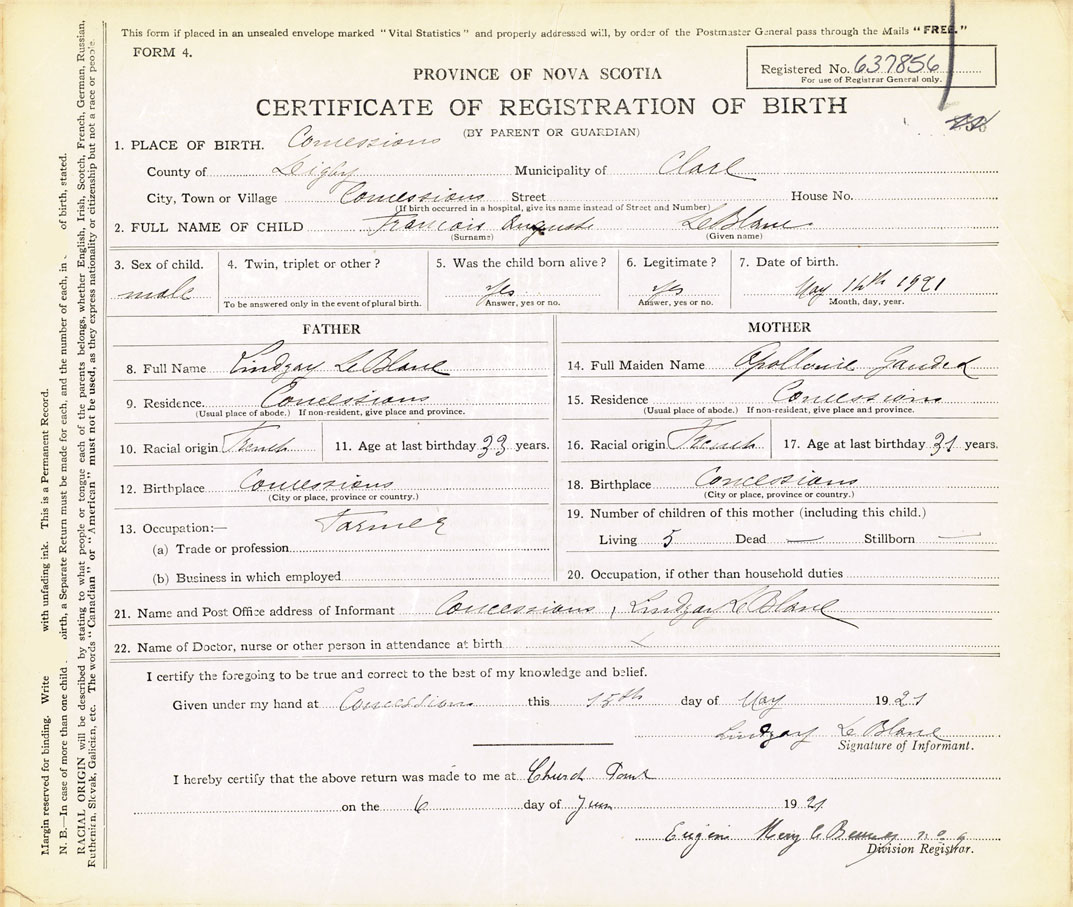 This form if placed in an unsealed envelope marked "Vital Statistics" and properly addressed will, by order of the Postmaster General pass through the Mails "FREE."
FORM 4.
PROVINCE OF NOVA SCOTIA
Registered No. 637856
For use of Registrar General only.
CERTIFICATE OF REGISTRATION OF BIRTH
(BY PARENT OR GUARDIAN)
1. PLACE OF BIRTH. Concessions
County of Digby Municipality of Clare
City, Town or Village Concessions Street House No.
(If birth occurred in a hospital, give its name instead of Street and Number)
2. FULL NAME OF CHILD Francois Auguste LeBlanc
(Surname) (Given name)
3. Sex of child. 4. Twin, triplet or other? 5. Was the child born alive? 6. Legitimate? 7. Date of birth.
male yes yes May 14th 1921
To be answered only in the event of plural birth. Answer, yes or no. Answer, yes or no. Month, day, year.
FATHER
8. Full Name Lindzay LeBlanc
9. Residence. Concessions
(Usual place of abode.) If non-resident, give place and province.
10. Racial origin French 11. Age at last birthday 33 years.
12. Birthplace Concessions
(City or place, province or country.)
13. Occupation:— Farmer
(a) Trade or profession
(b) Business in which employed
MOTHER
14. Full Maiden Name Apollonie
15. Residence Concessions
(Usual place of abode.) If non-resident, give place and province.
16. Racial origin French 17. Age at last birthday 31 years.
18. Birthplace Concessions
(City or place, province or country.)
19. Number of children of this mother (including this child.)
Living 5 Dead — Stillborn —
20. Occupation, if other than household duties
21. Name and Post Office address of Informant Concessions, Lindzay LeBlanc
22. Name of Doctor, nurse or other person in attendance at birth
I certify the foregoing to be true and correct to the best of my knowledge and belief.
Given under my hand at Concessions this 15th day of May 1921
Lindzay LeBlanc
Signature of Informant.
I hereby certify that the above return was made to me at Church Point
on the 6 day of June 1921
Division Registrar.
Margin reserved for binding. Write with unfading ink. This is a Permanent Record.
N. B.—In case of more than one child birth, a Separate Return must be made for each, and the number of each, in of birth, stated.
RACIAL ORIGIN will be described by stating to what people or tongue each of the parents belongs, whether English, Irish, Scotch, French, German, Russian,
Ruthenian, Slovak, Galician, etc. The words "Canadian" or "American" must not be used, as they express nationality or citizenship but not a race or people.